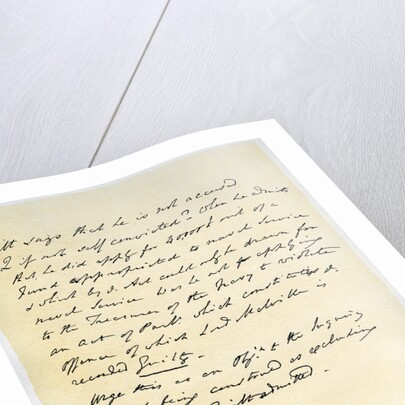 Mr says that he is not accused
& if not self convicted? when he admits
that he did apply for 40000£ out of a
fund appropriated to naval Service
& which by the Act could only be drawn for
naval Service was he not applying
to the Treasurer of the Navy to violate
an act of Parlt: which constitutes the
offence of which Lord Melville is
recorded Guilty -
Urge this as an Objn to the Inquiry
being construed as excluding
admitted -